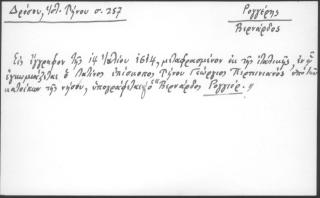 Δρόσου, Ἱστ. Τήνου σ. 257
Ρογγέρης
Βερνάρδος
Εἰς ἔγγραφον τῆς 14 Ἰουλίου 1614, μεταφρασμένον ἐκ τῆς ἰταλικῆς, ἐν ᾧ
ἐγκωμιάζεται ὁ Λατῖνος ἐπίσκοπος Τήνου Γεώργιος Περπινιανός ὑπὸ τῶν
κατοίκων τῆς νήσου, ὑπογράφεται καὶ ὁ Βερνάρδος Ρογγιέρ.